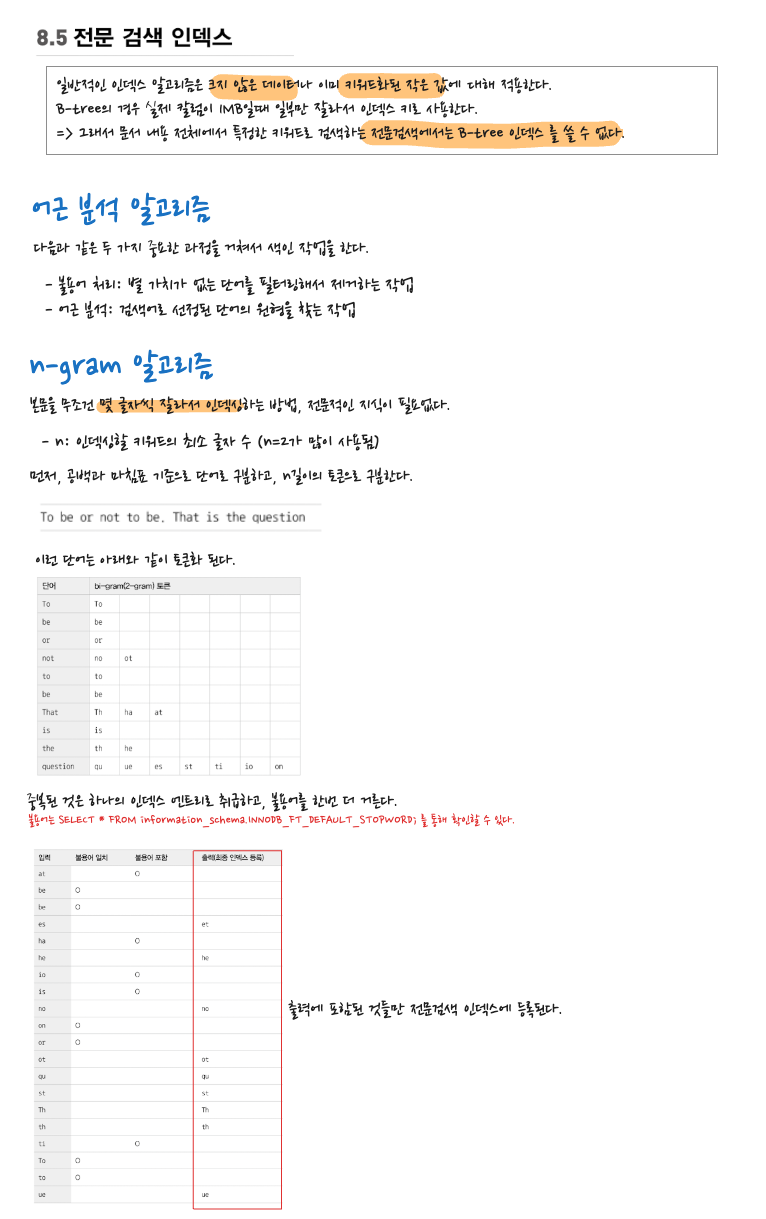 8.5 전문 검색 인덱스
일반적인 인덱스 알고리즘은 크지 않은 데이터나 이미 키워드화된 작은 값에 대해 적용한다.
B-tree의 경우 실제 칼럼이 1MB일때 일부만 잘라서 인덱스 키로 사용한다.
=> 그래서 문서 내용 전체에서 특정한 키워드로 검색하는 전문검색에서는 B-tree 인덱스 를 쓸 수 없다.
어근 분석 알고리즘
다음과 같은 두 가지 중요한 과정을 거쳐서 색인 작업을 한다.
- 불용어 처리: 별 가치가 없는 단어를 필터링해서 제거하는 작업
- 어근 분석: 검색어로 선정된 단어의 원형을 찾는 작업
n-gram 알고리즘
본문을 무조건 몇 글자씩 잘라서 인덱싱하는 방법, 전문적인 지식이 필요없다.
- n: 인덱싱할 키워드의 최소 글자 수 (n=2가 많이 사용됨)
먼저, 공백과 마침표 기준으로 단어로 구분하고, n길이의 토큰으로 구분한다.
To be or not to be. That is the question
이런 단어는 아래와 같이 토큰화 된다.
단어 bi-gram(2-gram) 토큰
To To
be be
or or
not no ot
to to
be be
That Th ha at
is is
the th he
question qu ue es st ti io on
중복된 것은 하나의 인덱스 엔트리로 취급하고, 불용어를 한번 더 거른다.
불용어는 SELECT * FROM information_schema.INNODB_FT_DEFAULT_STOPWORD; 를 통해 확인할 수 있다.
입력 불용어 일치 불용어 포함 출력(최종 인덱스 등록)
at O
be O
be O
es et
ha O
he he
io O
is O
no no
on O
or O
ot ot
qu qu
st st
Th Th
th th
ti O
To O
to O
ue ue
출력에 포함된 것들만 전문검색 인덱스에 등록된다.